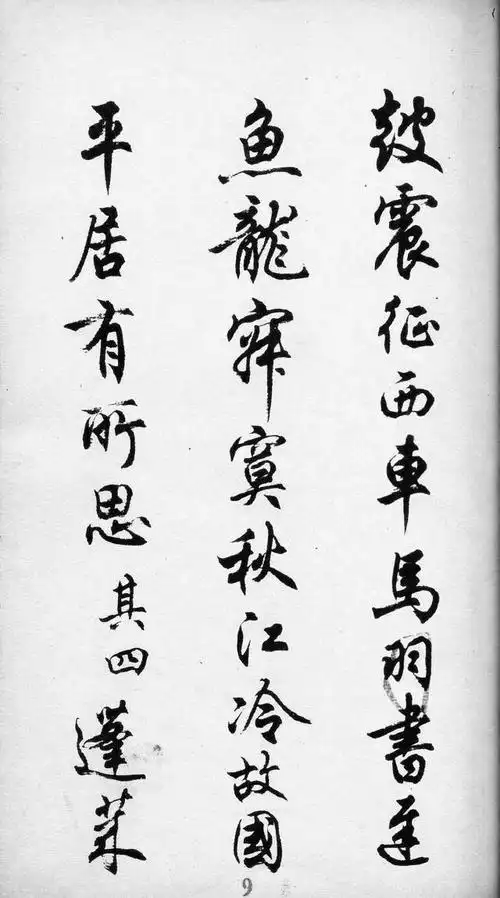 鼓震征西車馬羽書遲
魚龍寂寞秋江冷故國
平居有所思其四蓬萊
9